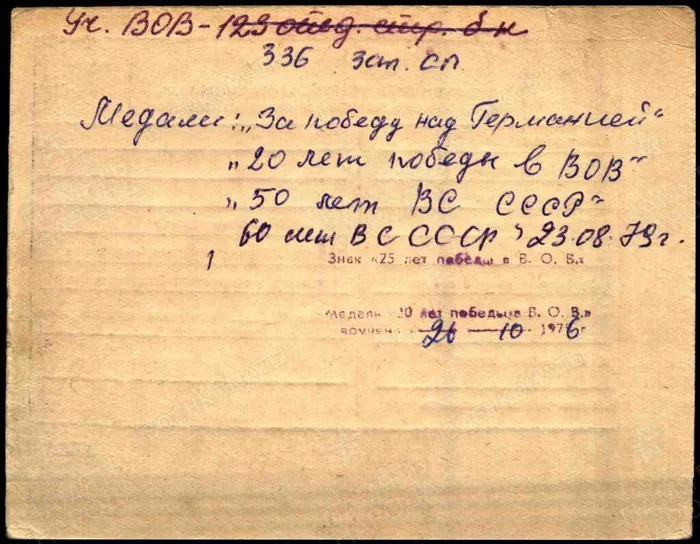 Уч. ВОВ - 123 отд. стр. б-н
336 зап. сп.
Медали: „За победу над Германией"
„20 лет победы в ВОВ"
„50 лет ВС СССР"
60 лет ВС СССР" 23.08.79г.
1
Знак «25 лет победы в В. О. В.»
Медаль «30 лет победы в В. О. В.»
вручен 26 — 10 — 1976г